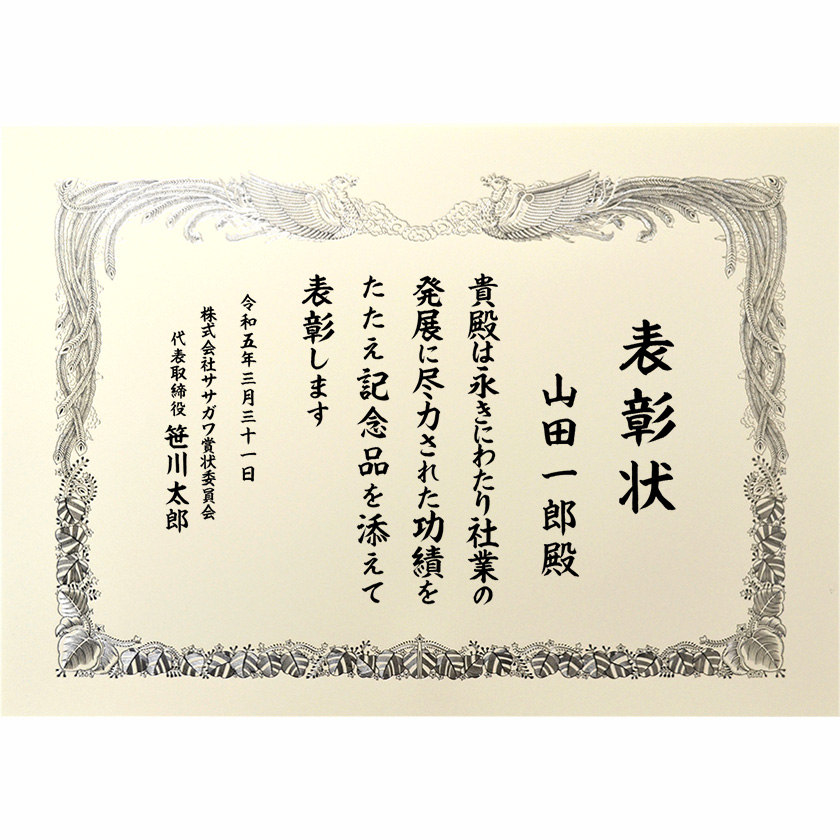 表彰状
山田一郎殿
貴殿は永きにわたり社業の
発展に尽力された功績を
たたえ記念品を添えて
表彰します
令和五年三月三十一日
株式会社ササガワ賞状委員会
代表取締役 笹川太郎